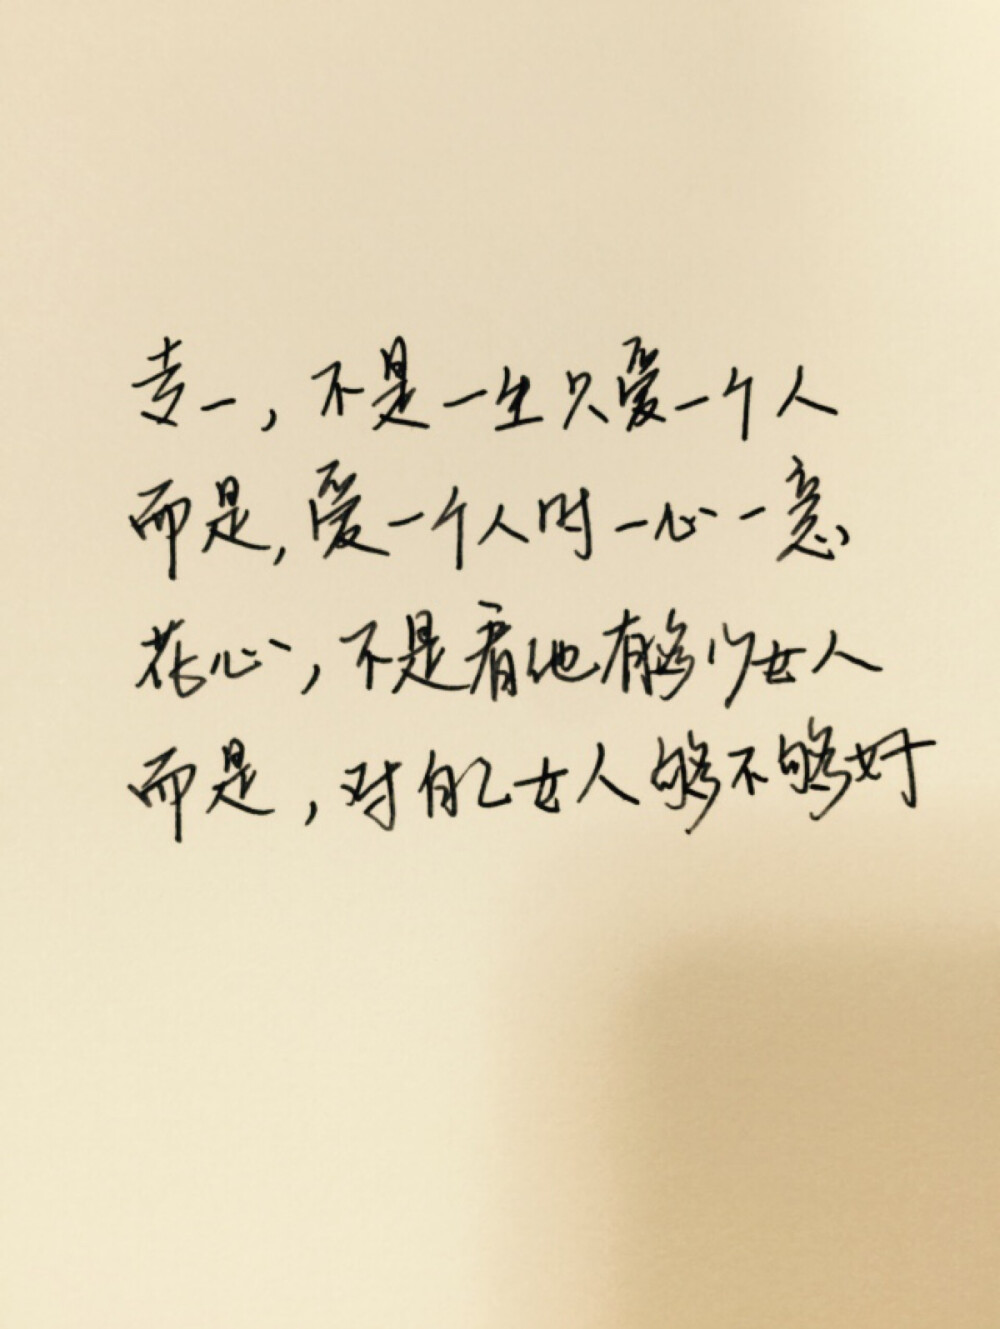 专一，不是一生只爱一个人
而是，爱一个人时一心一意
花心，不是看他有够少女人
而是，对自己女人够不够好